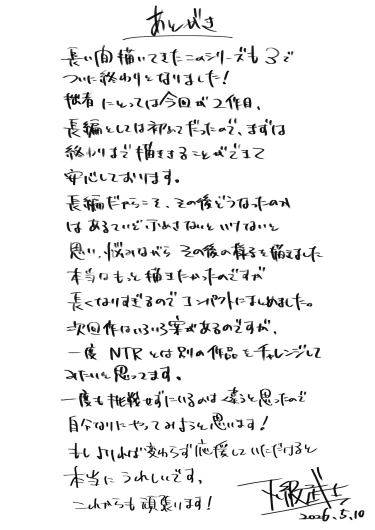 あとがき
長い間描いてきたこのシリーズも3で
ついに終わりとなりました!
拙者にとっては今回が2作目、
長編としては初めてだったので、まずは
終わりまで描ききることができて
安心しております。
長編だからこそ、その後どうなったのか
はあるていど示めさないといけないと
思い、悩みながらその後の様子を描きました
本当はもっと描きたかったのですが
長くなりすぎるのでコンパクトにまとめました。
次回作はいろいろ案があるのですが、
一度 NTRとは別の作品をチャレンジして
みたいと思ってます。
一度も挑戦せずにいるのは違うと思ったので
自分なりにやってみようと思います!
もしよければ変わらず応援していただけると
本当にうれしいです。
これからも頑張ります!
下級武士
2026.5.10